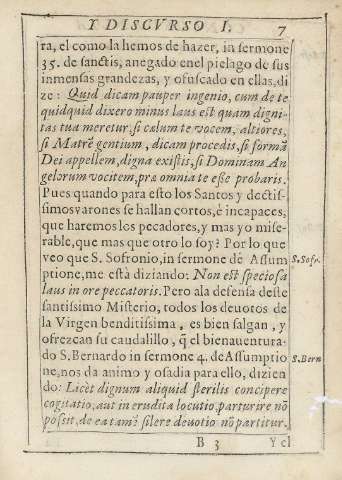 Y DISCVRSO I. 7
ra, el como la hemos de hazer, in sermone
35. de sanctis, anegado enel pielago de sus
inmensas grandezas, y ofuscado en ellas, di
ze: Quid dicam pauper ingenio, cum de te
quidquid dixero minus laus est quam digni-
tas tua meretur, si cælum te vocem, altiores,
si Matrē gentium, dicam procedis, si formā
Dei appellem, digna existis, si Dominam An
gelorum vocitem, præ omnia te esse probaris.
Pues quando para esto los Santos y dectis-
simosvarones se hallan cortos, é incapaces,
que haremos los pecadores, y mas yo mise-
rable, que mas que otro lo soy? Por lo que
veo que S. Sofronio, in sermone dē Assum
S. Sofr.
ptione, me està diziando: Non est speciosa
laus in ore peccatoris. Pero ala defensa deste
santissimo Misterio, todos los deuotos de
la Virgen benditissima, es bien salgan, y
ofrezcan su caudalillo, q̄ el bienauentura-
do S. Bernardo in sermone 4. de Assumptio
S. Bern
ne, nos da animo y osadia para ello, dizien
do: Licèt dignum aliquid sterilis concipere
cogitatio, aut in erudita locutio, parturire nō
possit, de ea tamē silere deuotio nō partitur.
B 3 Y el